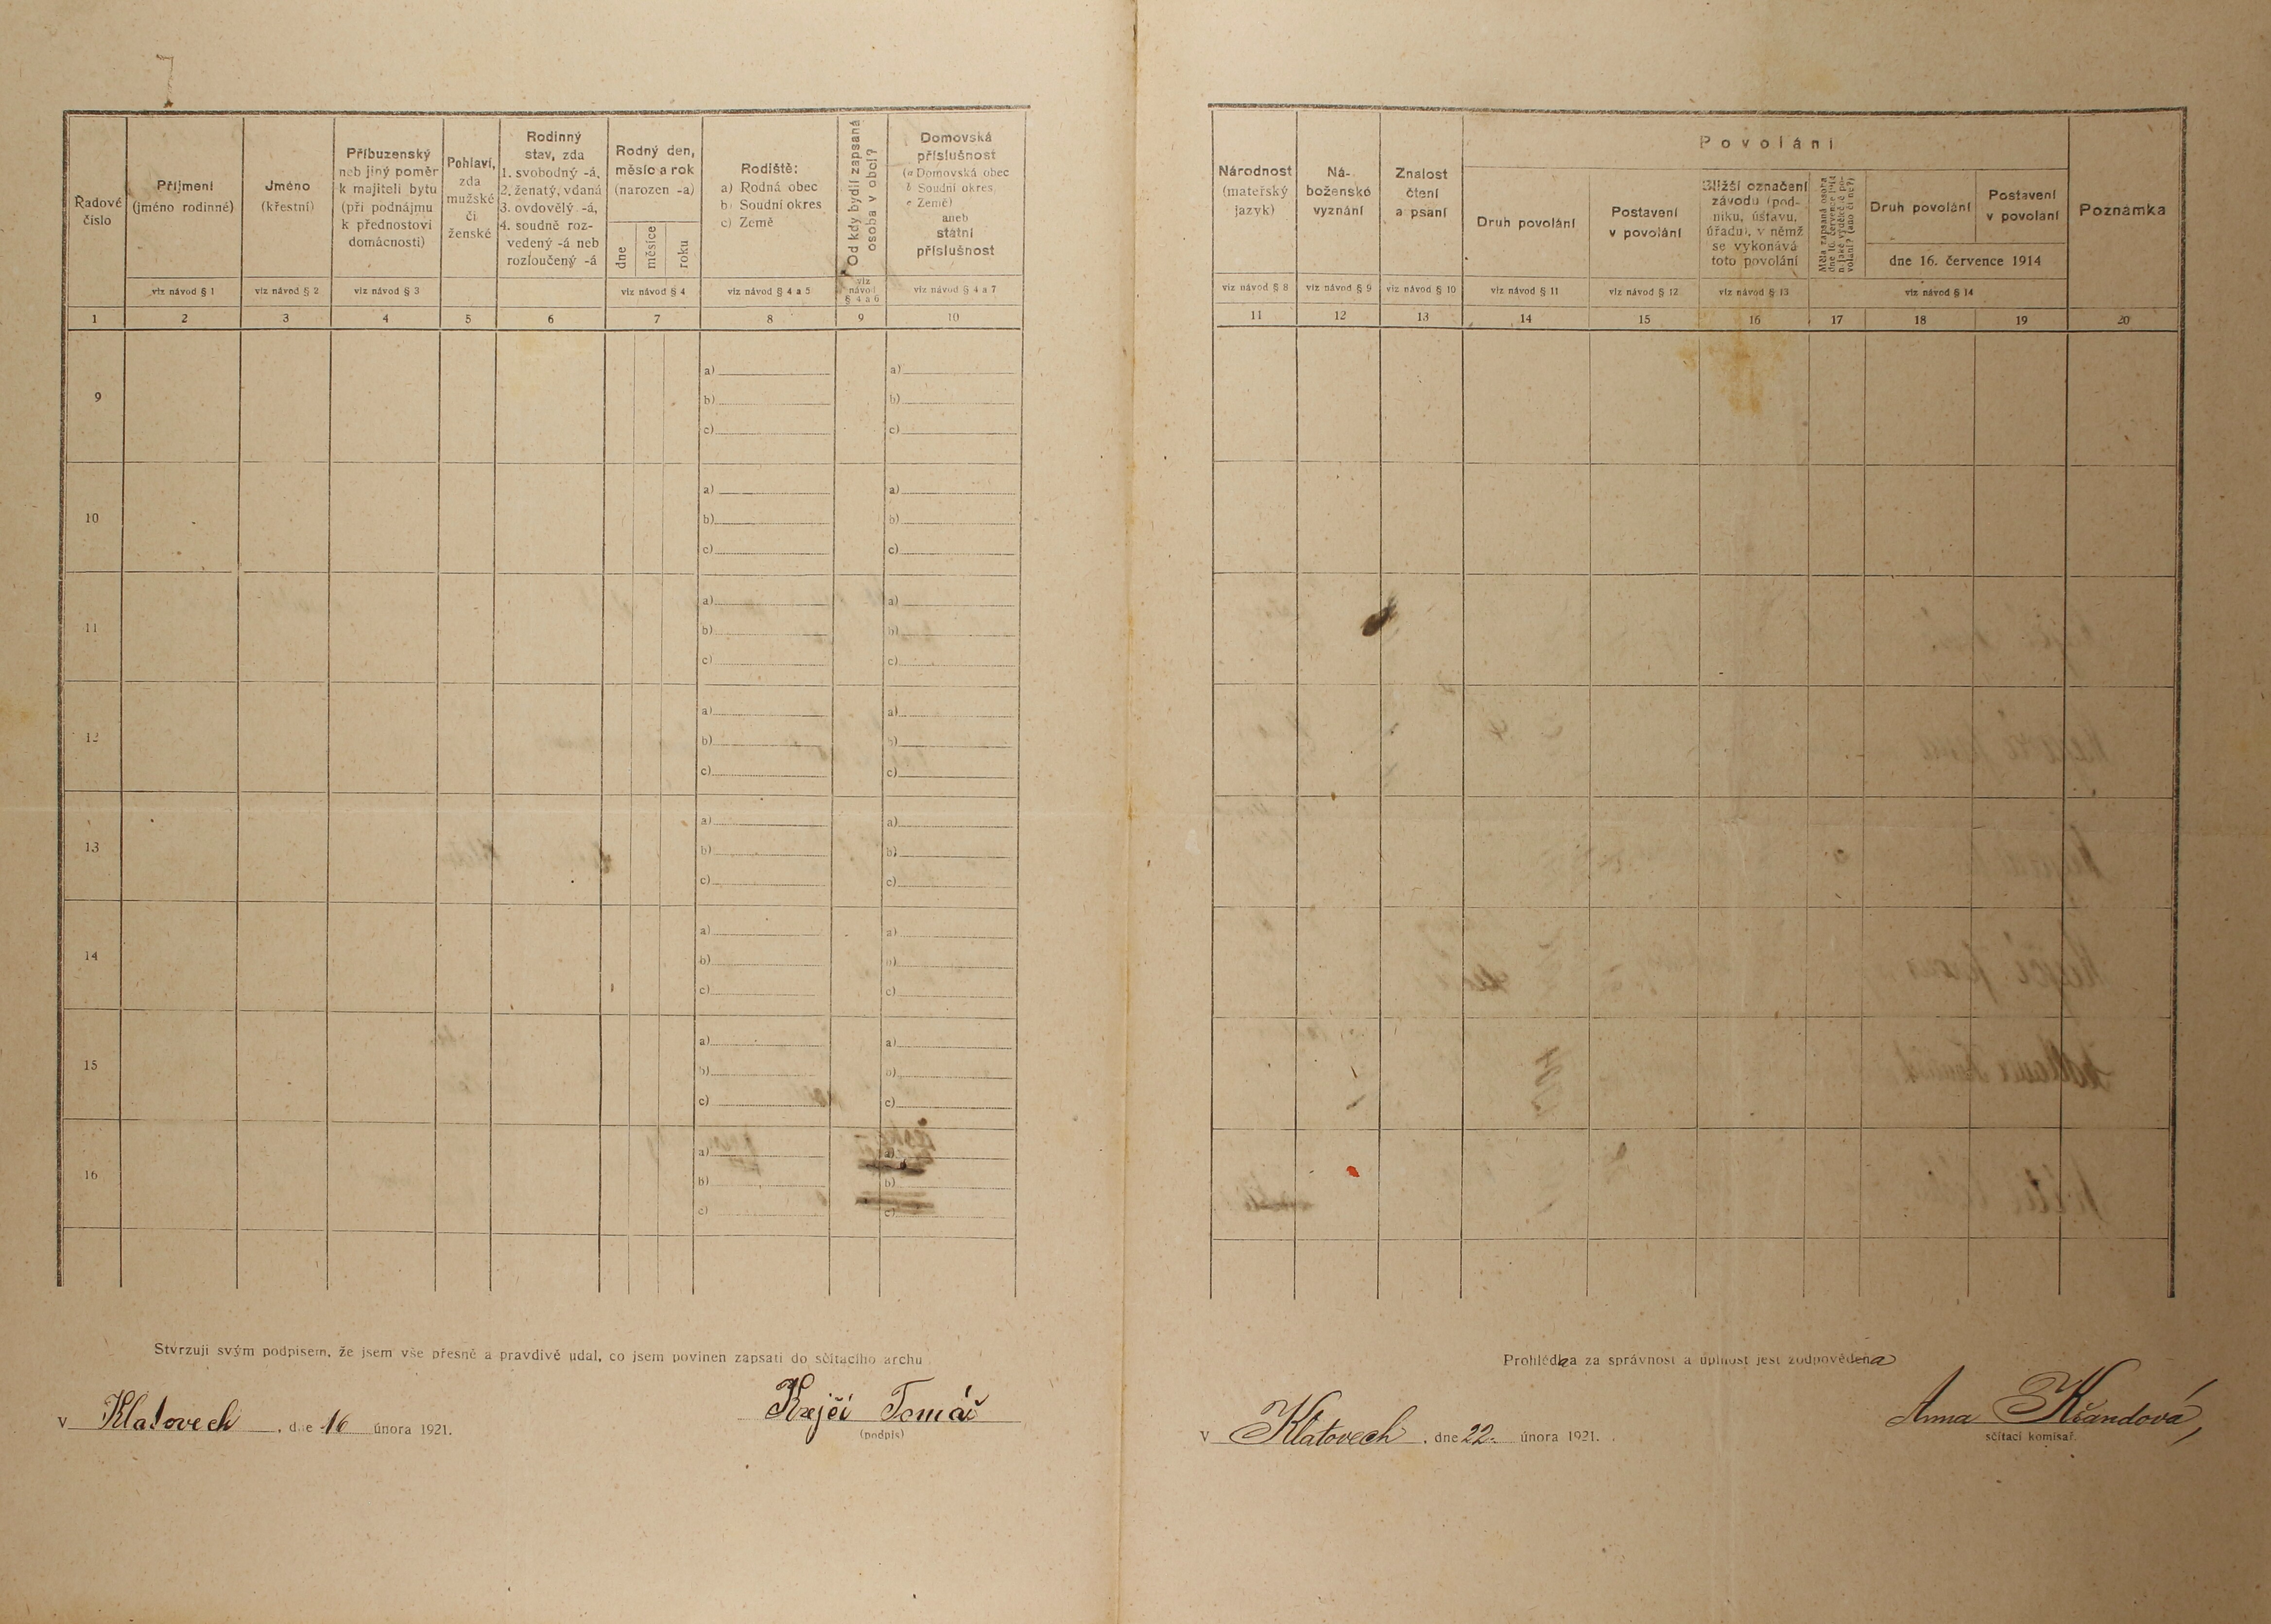 Řadové
číslo
Příjmení
(jméno rodinné)
Jméno
(křestní)
Příbuzenský
neb jiný poměr
k majiteli bytu
(při podnájmu
k přednostovi
domácnosti)
Pohlaví,
zda
mužské
či
ženské
Rodinný
stav, zda
1. svobodný -á,
2. ženatý, vdaná
3. ovdovělý -á,
4. soudně roz-
vedený -á neb
rozloučený -á
Rodný den,
měsíc a rok
(narozen -a)
dne
měsíce
roku
Rodiště:
a) Rodná obec
b) Soudní okres
c) Země
Od kdy bydlí zapsaná
osoba v obci?
Domovská
příslušnost
(a Domovská obec
b Soudní okres
c Země)
aneb
státní
příslušnost
viz návod § 1
viz návod § 2
viz návod § 3
viz návod § 4
viz návod § 4 a 5
viz
návod
§ 4 a 6
viz návod § 4 a 7
1 2 3 4 5 6 7 8 9 10
9
a) a)
b) b)
c) c)
10
a) a)
b) b)
c) c)
11
a) a)
b) b)
c) c)
12
a) a)
b) b)
c) c)
13
a) a)
b) b)
c) c)
14
a) a)
b) b)
c) c)
15
a) a)
b) b)
c) c)
16
a) a)
b) b)
c) c)
Stvrzuji svým podpisem, že jsem vše přesně a pravdivě udal, co jsem povinen zapsati do sčítacího archu
v Klatovech, dne 16 února 1921.
Krejčí Tomáš
(podpis)
Národnost
(mateřský
jazyk)
Ná-
boženské
vyznání
Znalost
čtení
a psaní
Povolání
Druh povolání
Postavení
v povolání
Bližší označení
závodu (pod-
niku, ústavu,
úřadu), v němž
se vykonává
toto povolání
Měla zapsaná osoba
dne 16. července 1914
Druh povolání
Postavení
v povolání
dne 16. července 1914
Poznámka
viz návod § 8
viz návod § 9
viz návod § 10
viz návod § 11
viz návod § 12
viz návod § 13
viz návod § 14
11 12 13 14 15 16 17 18 19 20
Prohlédla a za správnost a úplnost jest zodpovědna
v Klatovech, dne 22. února 1921.
Anna Kčandová,
sčítací komisař.